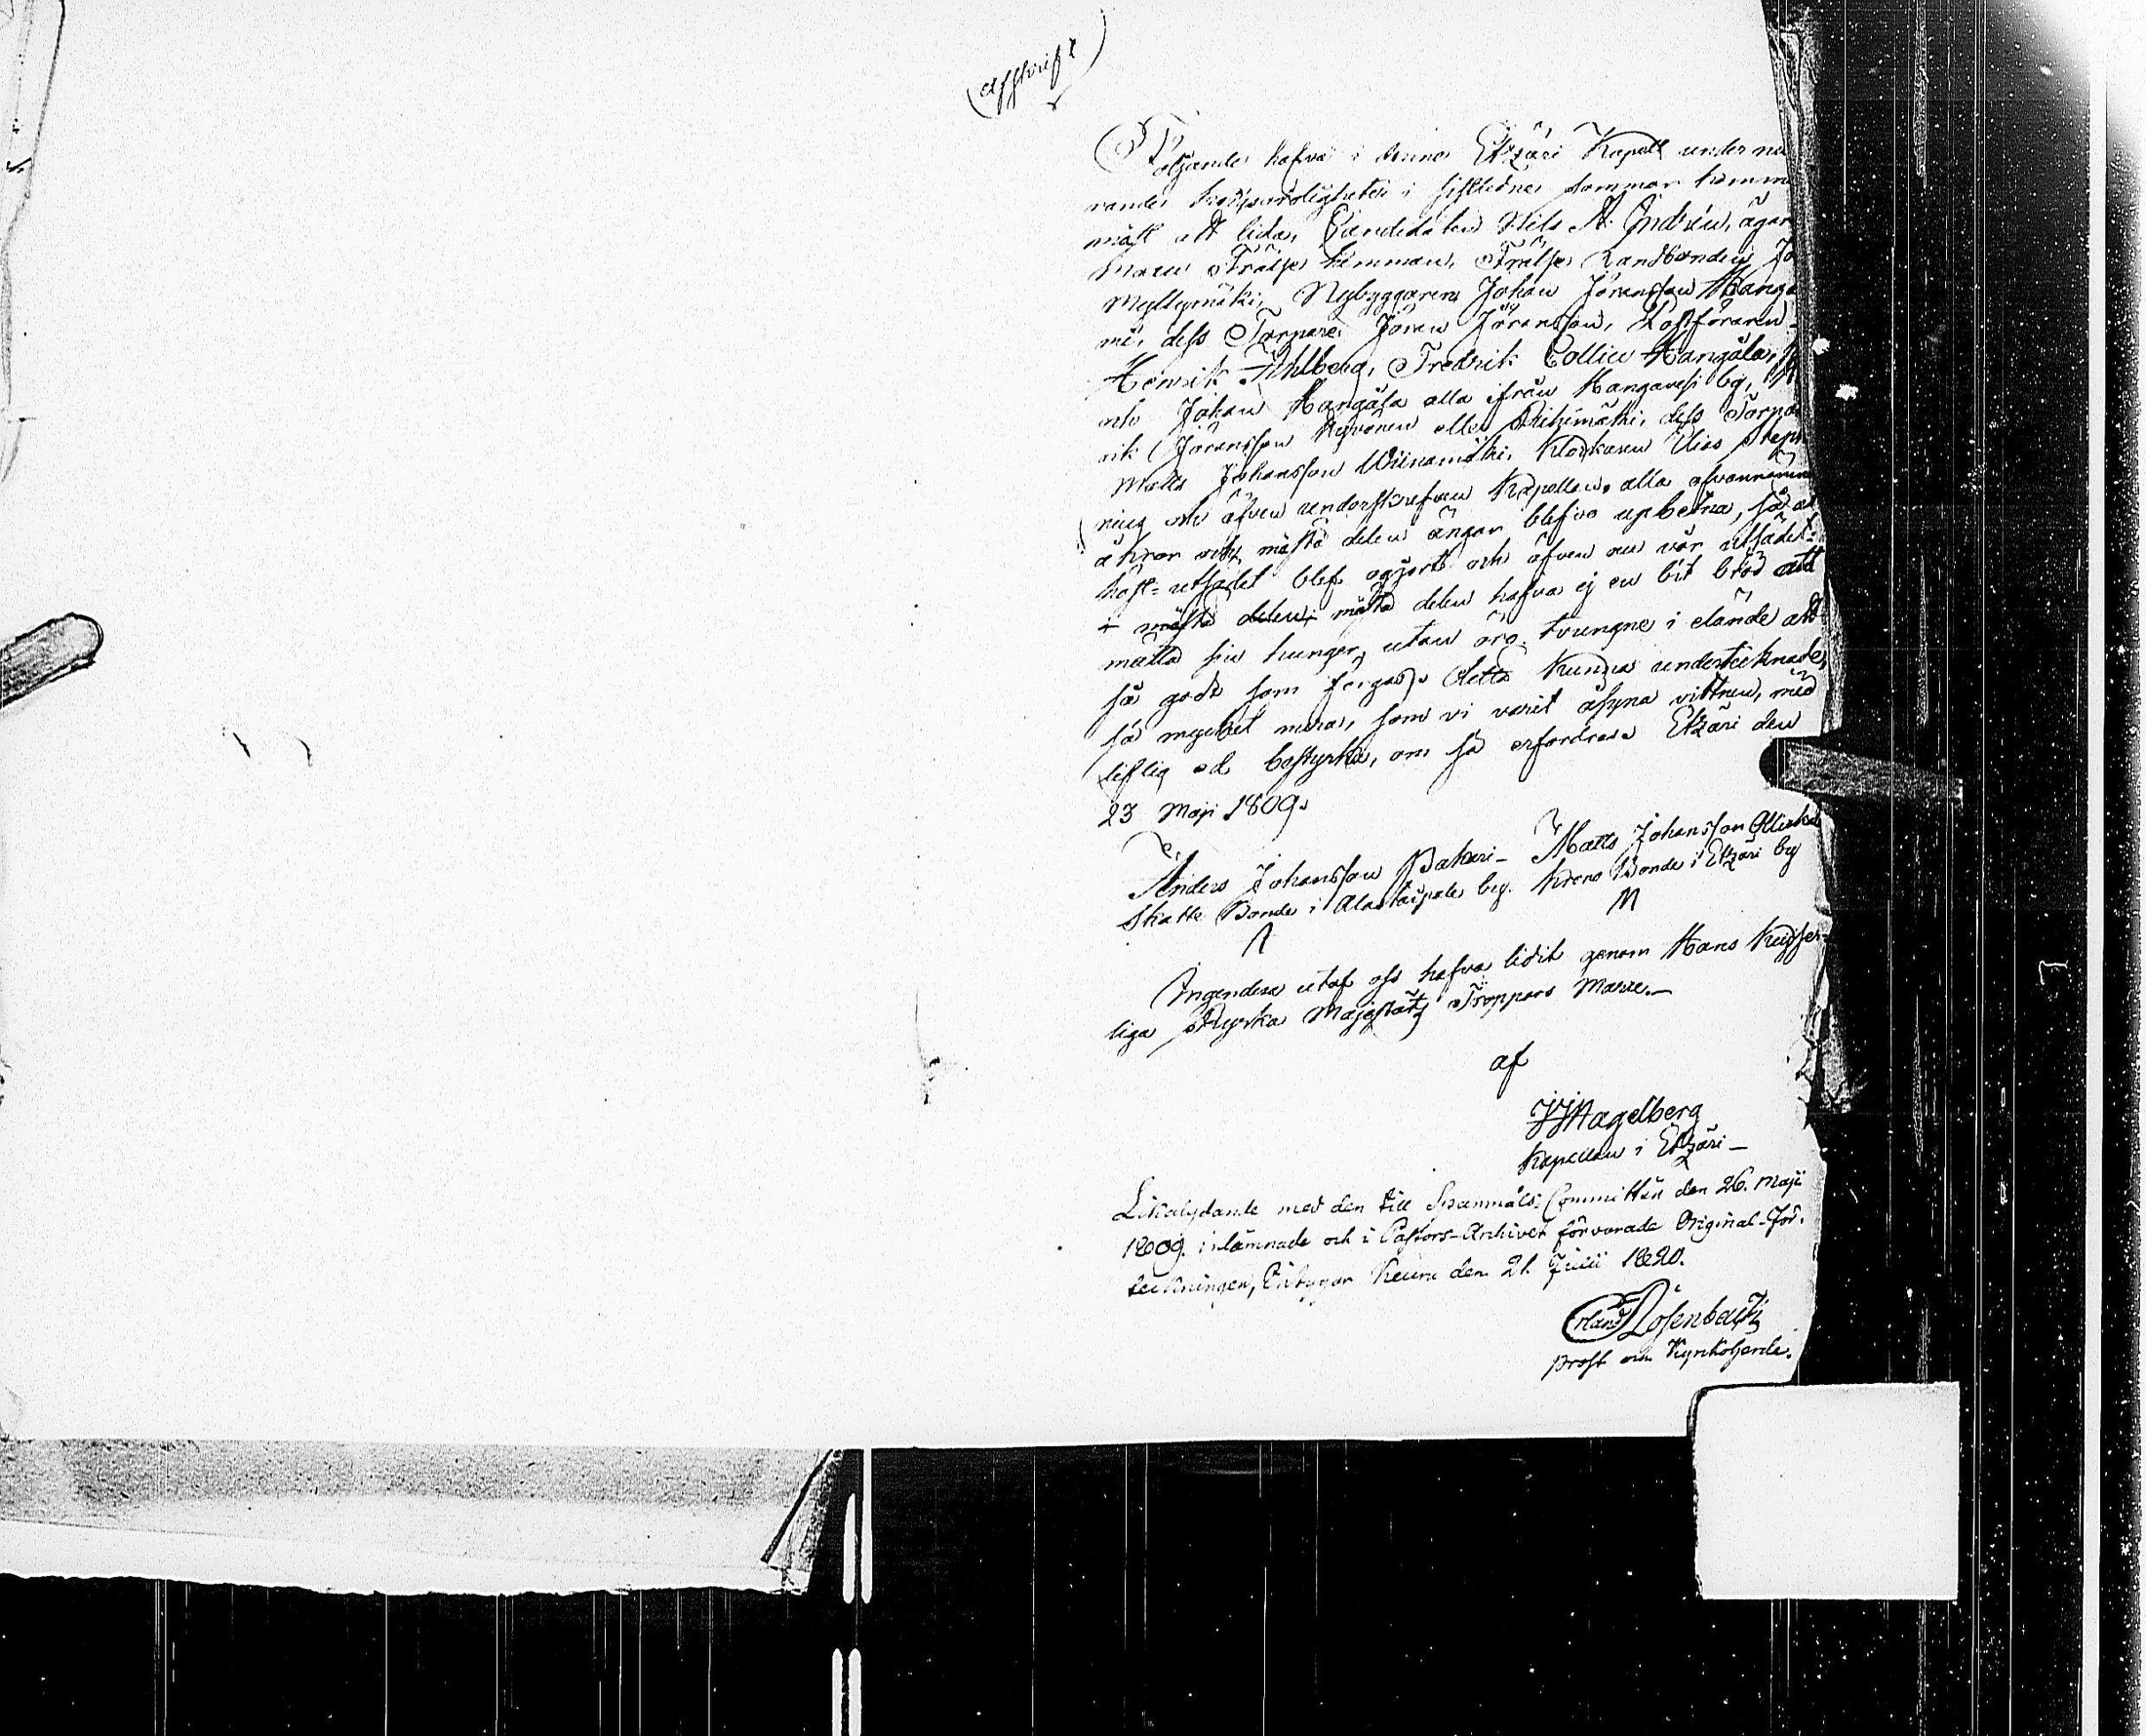 Afskrift
Följande hafva i denna Etzäri Kapell under na
rande krigsoroligheter i sistledne sommar komm
mäst att lida, Candidaten Nils A. Indrén, ägar
Maeus Frälse hemman, Frälse Landbonden Jo
Myllymäki, Nybyggaren Johan Jöransson Hanga
mä, dess Torpare Jöran Jöransson, Postföraren
Henrik Ahlberg, Fredrik Collin Hangäla,
och Johan Hangäla alla ifrån Hangavesi by,
rik Jöransson Kyrönen eller Riihimäki, dess Torpa
Matts Johansson Wiinamäki, Klockaren Elias Steph
ning och äfven underskrefven Kapellan, alla ofvannämn
åkrar och mästa delen ängar blefvo upbetna, så at
höst-utsädet blef ogjort och äfven nu vår utsädet
i mästa delen; mästa delen hafva ej en bit bröd att
mätta sin hunger, utan äro tvungne i elände att
så godt som förgås. Detta kunna undertecknade,
så mycket mera, som vi varit åsyna vittnen, med
liflig ed bestyrka, om så erfordras. Etzäri den
23 Maji 1809.
Anders Johansson Pakari- Matts Johansson Ollick
Skatte Bonde i Alastaipale by. Krono Bonde i Etzäri by
M
Ingendera utaf oss hafva lidit genom Hans Kejser-
liga Ryska Majestäts Troppars Marche.-
af
JJHagelberg
Kapellan i Etzäri-
Likalydande med den till Spanmåls-Committén den 26. Maji
1809. inlämnade och i Pastors-Archivet förvarade Original-För-
teckningen, betygar Keuru den 21. Junii 1820.
Erland Rosenback
Prost och Kyrkoherde.